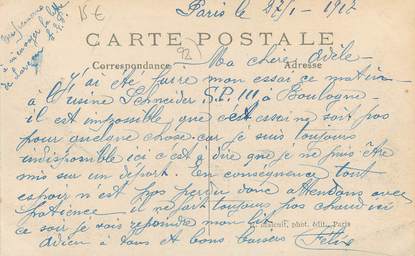 Paris le 27/1 - 1912
15 €
CARTE POSTALE
92
Correspondance
Adresse
Ma cher Adèle
J'ai été faire mon essai ce matin
à l'usine Schneider S.P. III à Boulogne
il est impossible que cet essai ne soit pas
pour quelque chose car je suis toujours
indisponible ici c'est à dire que je ne puis être
mis sur un départ. En conseguence tout
espoir n'est pas perdu donc attendons avec
patience il ne fait toujours pas chaud ici
ce soir je vais rejoindre mon lit
phot. édit., Paris
Adieu à tous et bons baisers Félix